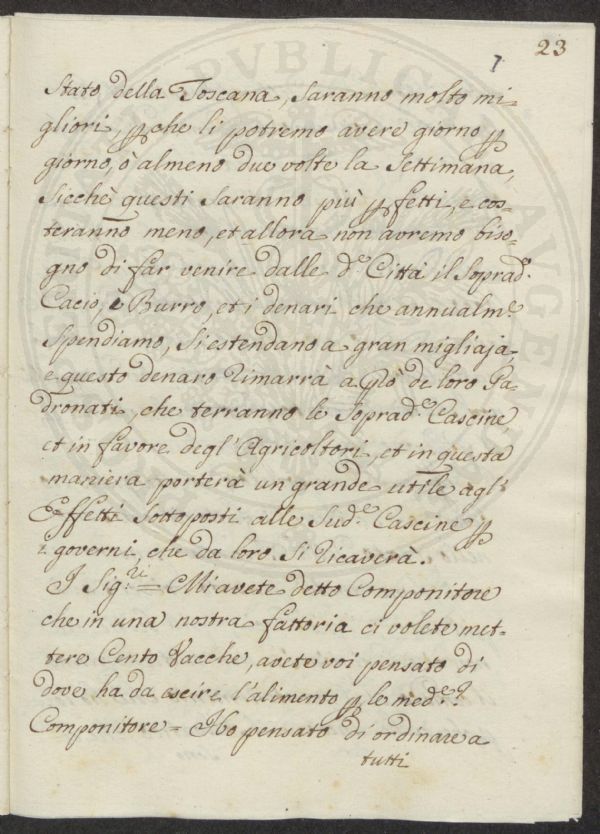 23
1
Stato della Toscana, saranno molto mi=
gliori, p che li potremo avere giorno p
giorno, ò almeno due volte la Settimana,
Sicchè questi saranno più pfetti, e cos=
teranno meno, et allora non avremo biso=
gno di far venire dalle d.e Città il Soprad.o
Cacio, e Burro, et i denari che annualm.e
Spendiamo, si estendano a gran migliaja
e questo denaro rimarrà a Pro de loro Pa=
dronati, che terranno le Soprad.e Cascine
et in favore degl'Agricoltori, et in questa
maniera porterà un grande utile agl'
Effetti Sottoposti alle Sud.e Cascine p
i governi, che da loro si ricaverà.
I Sig.ri = Mi avete detto Componitore
che in una nostra fattoria ci volete met=
tere Cento Vacche, avete voi pensato di
dove ha da escire l'alimento p le med.e?
Componitore = Ho pensato di ordinare a
tutti